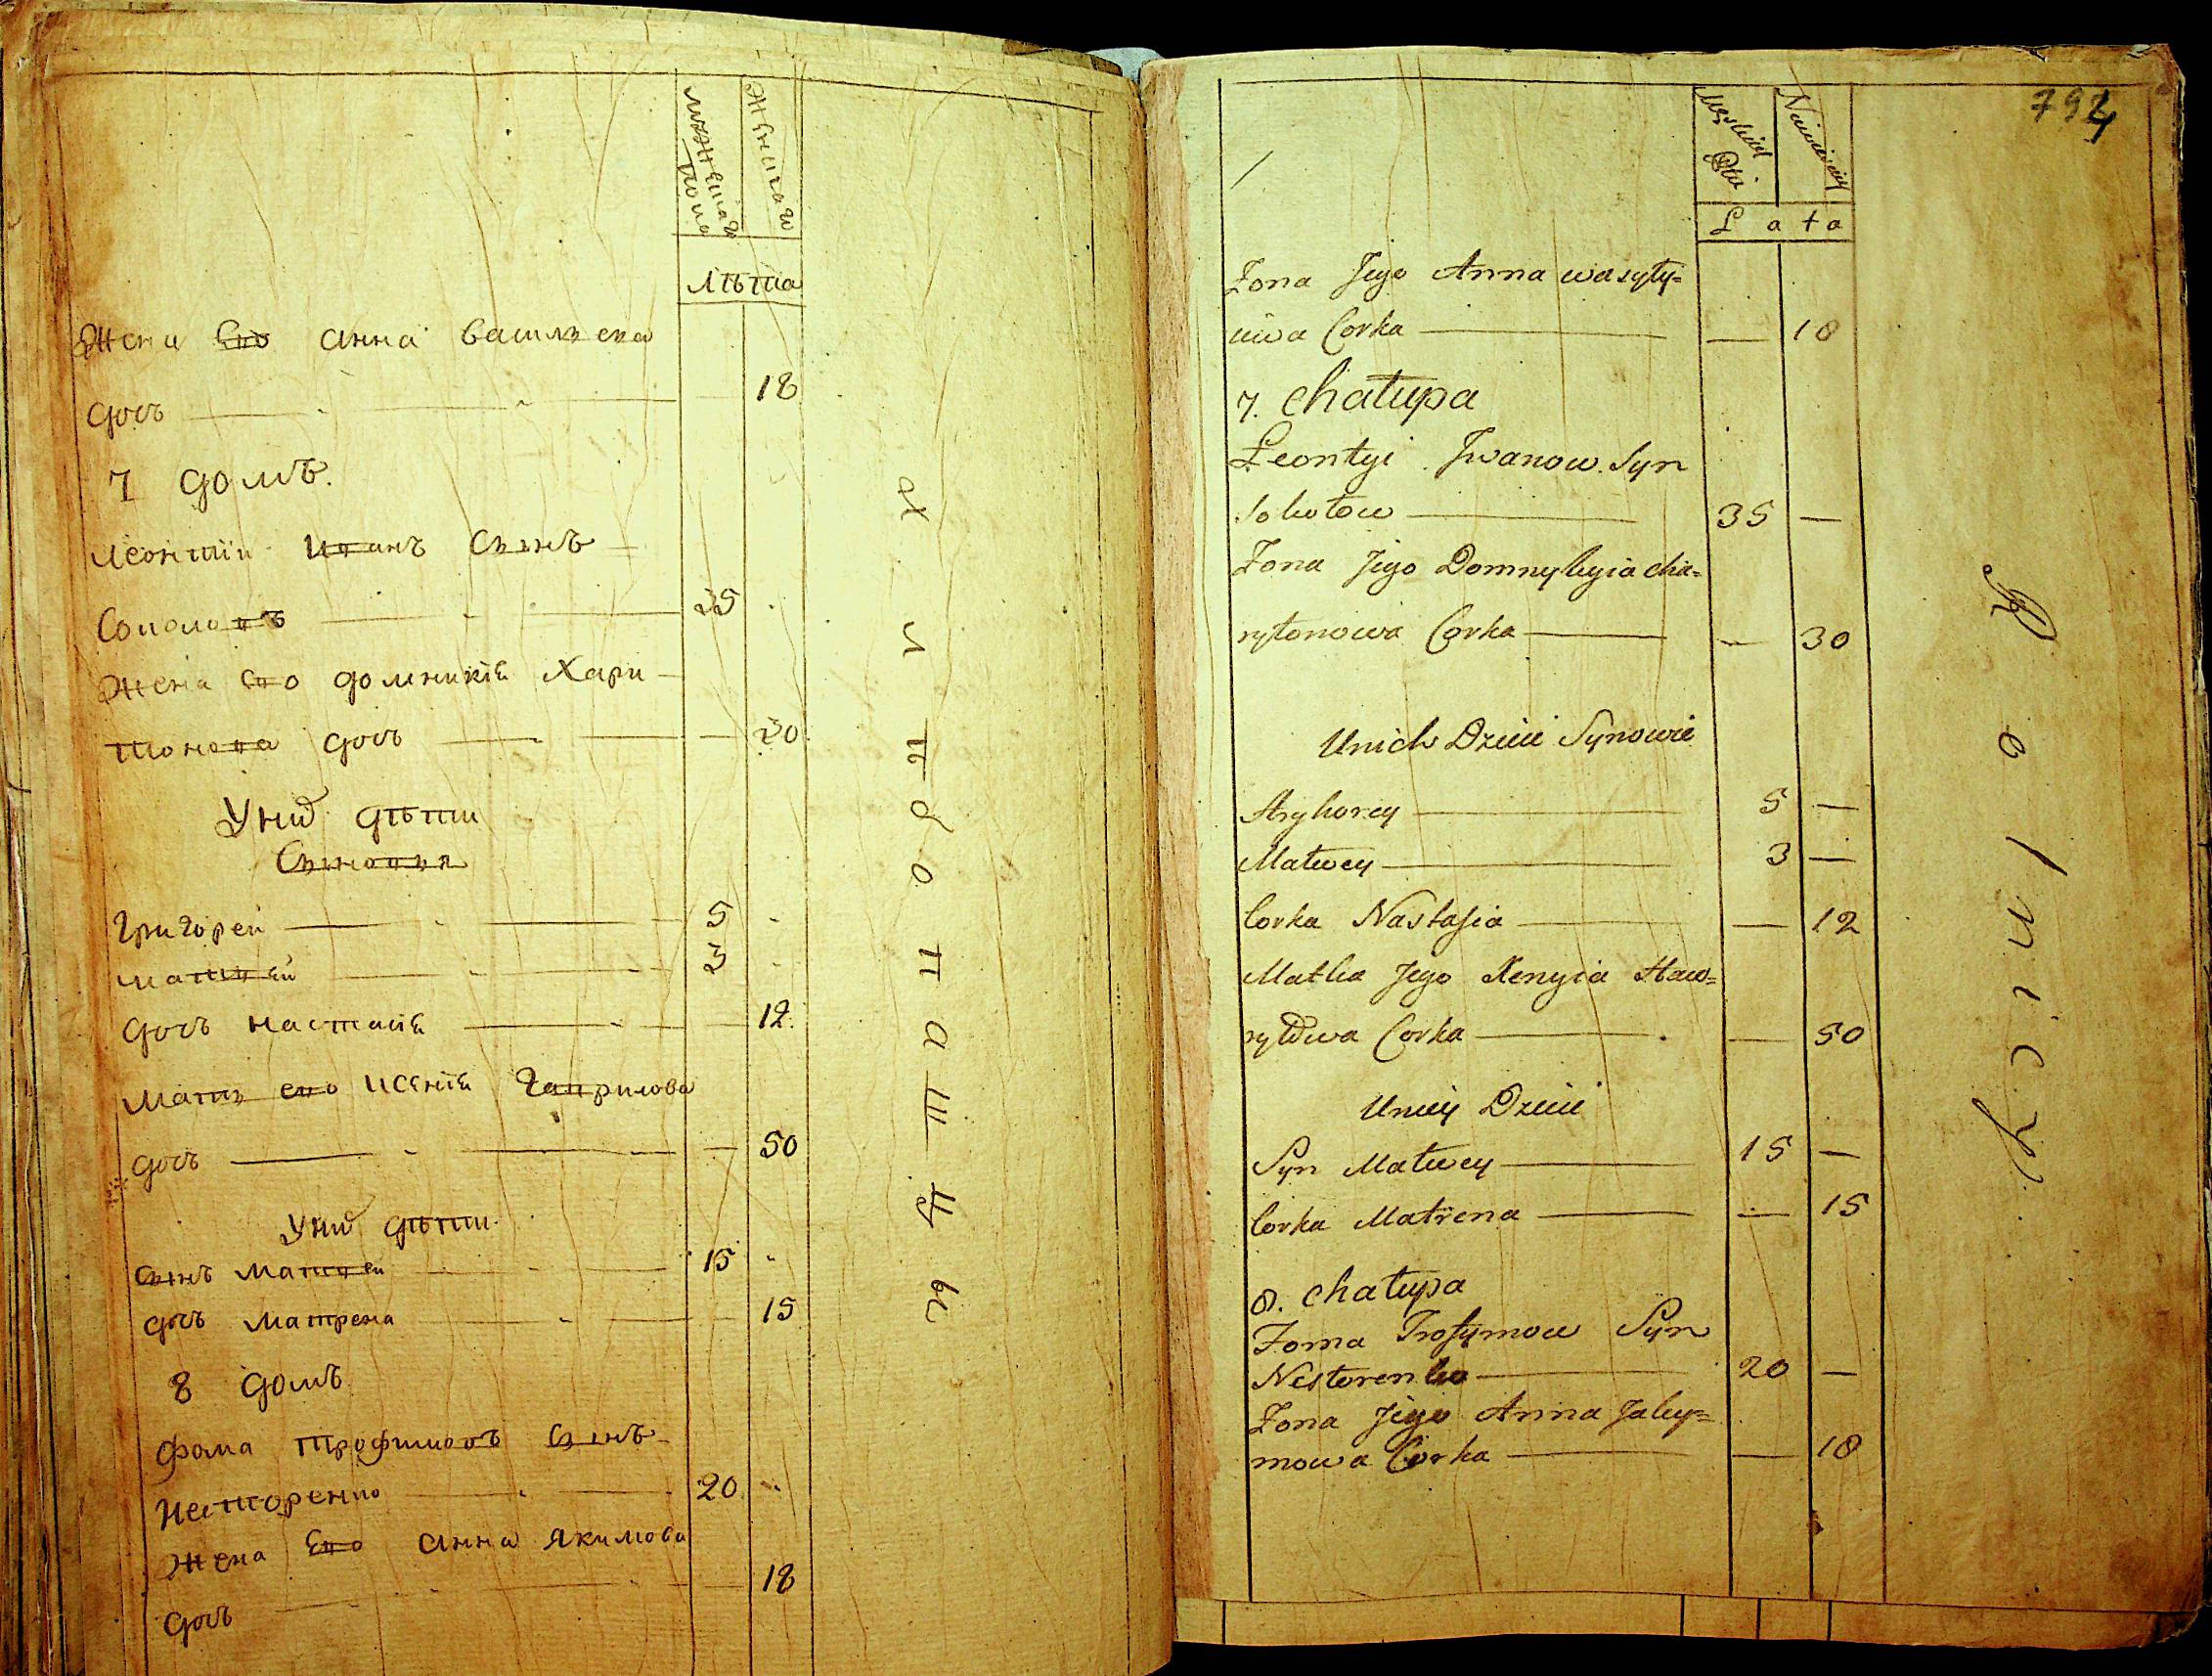 мужеска пола
женска
лѣта
Жена Ево Анна Василева
дочъ — — — 18
7 домъ.
Леонтїи Иванъ Сынъ —
Соколовъ — — 35
Жена Ево домникїа Хари-
тонова дочъ — — — 30
Унид дѣти
Сыновья
Григорей — — 5
матвей — — 3
дочъ настасїа — — 12
мать ево ксенїа Гаврилова
дочъ — — — 50
Унид дѣти
сынъ матвей — — 15
дочъ матрена — — — 15
8 домъ
фома трофимовъ Сынъ-
Несторенко — — 20
Жена Ево Анна Якимова
дочъ — — — 18
Хлѣбопашцы
794
Męskiey Płci
Niewieściey
Lata
Żona Jego Anna wasyły=
iewa Corka — — 18
7. chałupa
Leontyi Jwanow. Syn
Sokołow — 35 —
Żona Jego Domnykyia cha=
rytonowa Corka — — 30
Unich Dzieci Synowie
Hryhorey — 5 —
Matwey — 3 —
Corka Nastasia — — 12
Matka Jego Xenyia Haw=
ryłowa Corka — — 50
Uniey Dzieci
Syn Matwey — 15 —
Corka Matrena — — 15
8. chałupa
Foma Trofymow Syn
Nestorenko — 20 —
Żona Jego Anna Jaky=
mowa Corka — — 18
Rolnicy